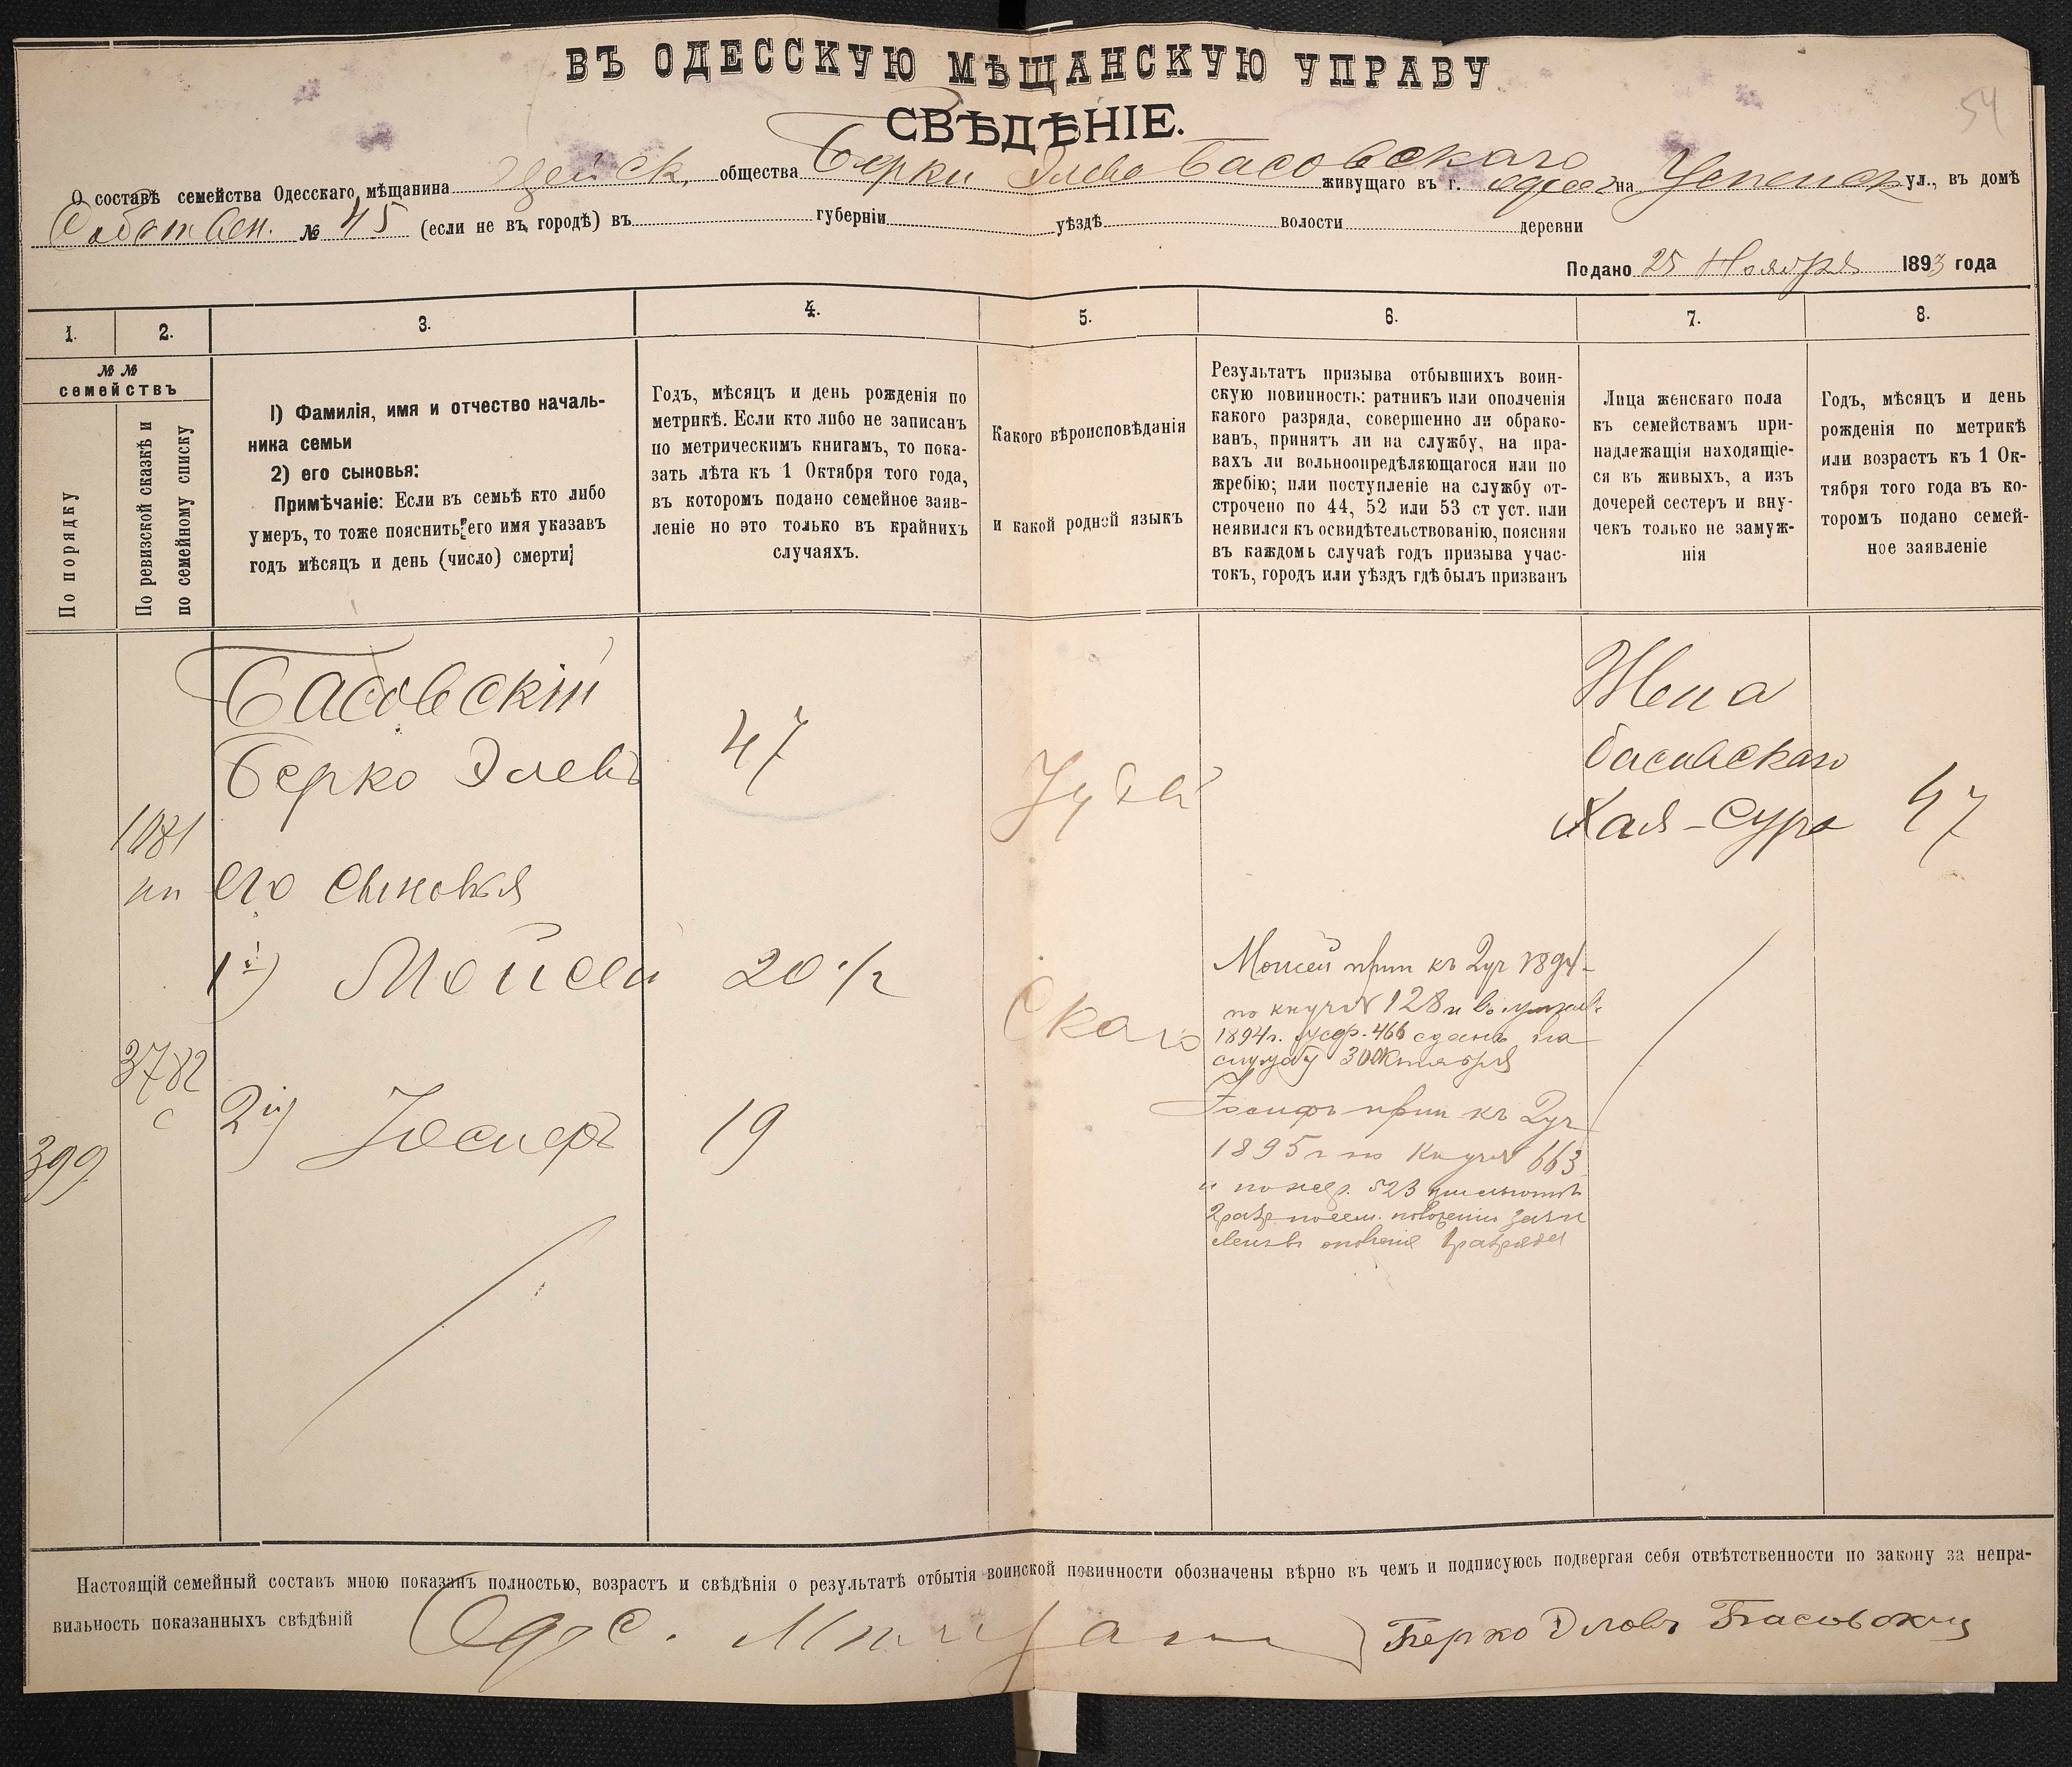 ВЪ ОДЕССКУЮ МѢЩАНСКУЮ УПРАВУ
СВѢДѢНІЕ.
54
О составѣ семейства Одесскаго мѣщанина общества Берки Элева Басовскаго живущаго въ г. Одессѣ на Успенск ул., въ домѣ
Собствен. № 45 (если не въ городѣ) въ губерніи уѣздѣ волости деревни
Подано 25 Ноября 1893 года
1. 2. 3. 4. 5. 6. 7. 8.
№№
семействъ
По порядку
По ревизской сказкѣ и
по семейному списку
1) Фамилія, имя и отчество началь-
ника семьи
2) его сыновья:
Примѣчаніе: Если въ семьѣ кто либо
умеръ, то тоже пояснить его имя указавъ
годъ мѣсяцъ и день (число) смерти
Годъ, мѣсяцъ и день рожденія по
метрикѣ. Если кто либо не записанъ
по метрическимъ книгамъ, то пока-
зать лѣта къ 1 Октября того года,
въ которомъ подано семейное заяв-
леніе но это только въ крайнихъ
случаяхъ.
Какого вѣроисповѣданія
и какой родной языкъ
Результатъ призыва отбывшихъ воин-
скую повинность: ратникъ или ополченія
какого разряда, совершенно ли обрако-
ванъ, принятъ ли на службу, на пра-
вахъ ли вольноопредѣляющагося или по
жребію; или поступленіе на службу от-
строчено по 44, 52 или 53 ст уст. или
неявился къ освидѣтельствованію, поясняя
въ каждомъ случаѣ годъ призыва учас-
токъ, городъ или уѣздъ гдѣ былъ призванъ
Лица женскаго пола
къ семействамъ при-
надлежащія находящіе-
ся въ живыхъ, а изъ
дочерей сестеръ и вну-
чекъ только не замуж-
нія
Годъ, мѣсяцъ и день
рожденія по метрикѣ
или возрастъ къ 1 Ок-
тября того года въ ко-
торомъ подано семей-
ное заявленіе
Басовскій
Берко Элевъ
47
Іудей
Жена
басовскаго
Хая-Сура
47
1181
его сыновья
1й) Мойсей
20 1/2
Скаго
Моисей прин къ 2уч 1894
по кн уч № 128 и въ
1894г. 466 сданъ на
службу 30 Октября
3782
с
2й) Іосифъ
19
399
Іосифъ прин къ 2уч
1895 г по Кн уч № 663
и по жер. 523
2 разр по сем. положенію
1 разряда
Настоящій семейный составъ мною показанъ полностью, возрастъ и свѣдѣнія о результатѣ отбытія воинской повинности обозначены вѣрно въ чемъ и подписуюсь подвергая себя отвѣтственности по закону за непра-
вильность показанныхъ свѣдѣній Одес. Мѣщан Берко Эловъ Басовский